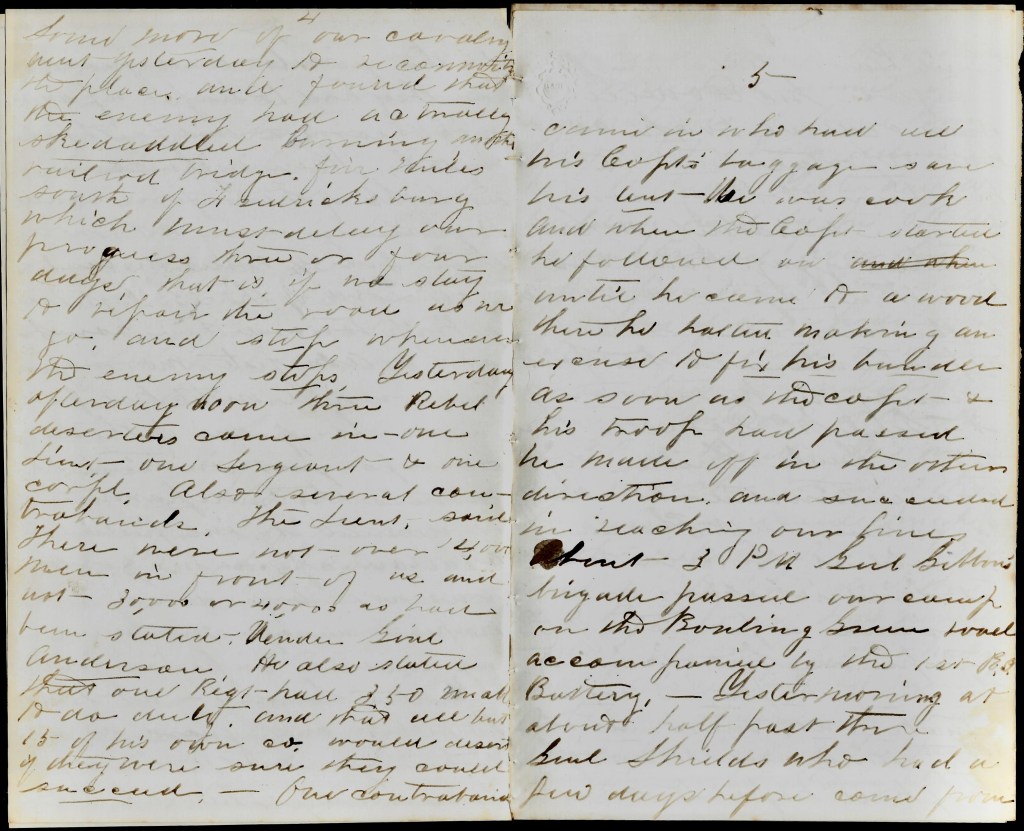 4
Some more of our cavalry
went yesterday to reconnoitre
the place, and found that
the enemy had actually
skedaddled burning
railroad bridge five miles
south of Fredricksburg
which must delay our
progress three or four
days, that is if we stay
to repair the road as we
go, and stop whenever
the enemy stops. Yesterday
afterday noon three Rebel
deserters came in - one
Lieut - one Sergeant & one
corpl. Also several con-
trabands. The Lieut. said
There were not over 4,000
men in front of us and
not 30,000 or 40000 as had
been stated. Under Genl
Anderson He also stated
that one Regt had 350 men
to do duty, and that all but
15 of his own co. would desert
if they were sure they could
succeed. — One contraband
5
came in who had all
his Capts baggage save
his tent - He was cook
and when the Capt started
he followed on and when
until he came to a wood
there he halted making an
excuse to fix his bundle
as soon as the Capt &
his troop had passed
he made off in the other
direction, and succeeded
in reaching our line
About 3 PM Genl Gibbons
brigade passed our camp
on the Bowling Green road
accompanied by the 1st R.I.
Battery, — Yestermorning at
about half past three
Genl Shields who had a
few days before come from